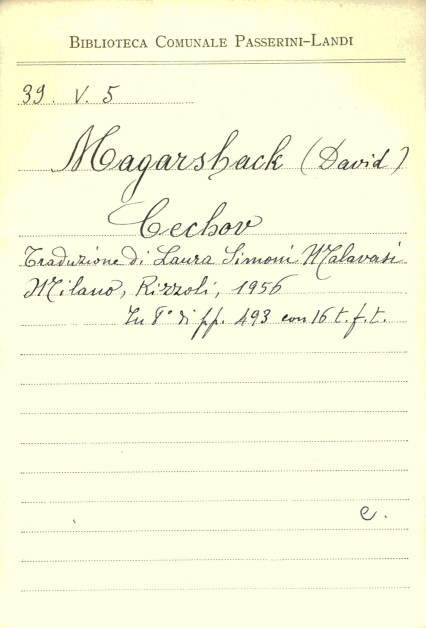 BIBLIOTECA COMUNALE PASSERINI-LANDI
39. V. 5
Magarshack (David)
Cechov
Traduzione di Laura Simoni Malavasi
Milano, Rizzoli, 1956
In 8° di pp. 493 con 16 t.f.t.
e.